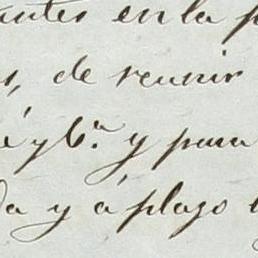 antes en la p
s, de reunir
é y C.ª y para
da y á plazo